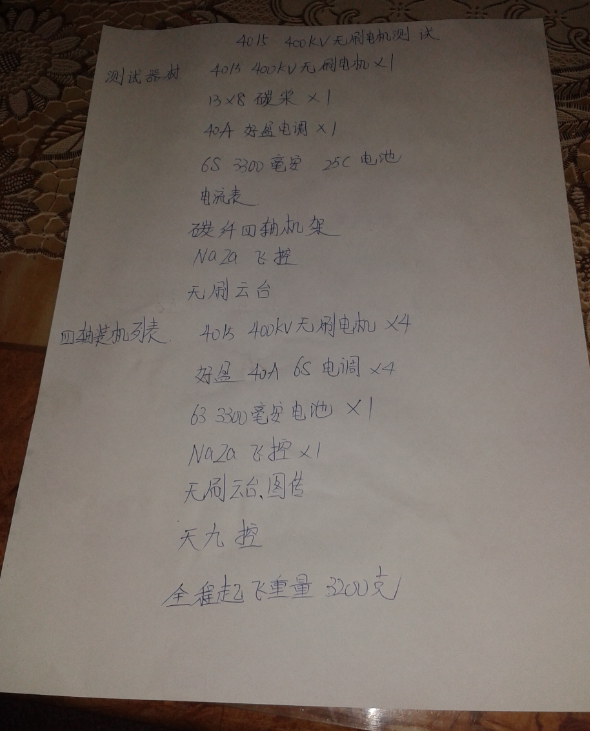 4015 400KV无刷电机测试
测试器材 4015 400KV无刷电机×1
13×8 碳桨 ×1
40A 好盈电调 ×1
6S 3300毫安 25C 电池
电流表
碳纤四轴机架
NaZa 飞控
无刷云台
四轴装机列表 4015 400KV无刷电机 ×4
好盈 40A 6S 电调 ×4
6S 3300毫安电池 ×1
NaZa 飞控 ×1
无刷云台、图传
天九 控
全程起飞重量 3200克